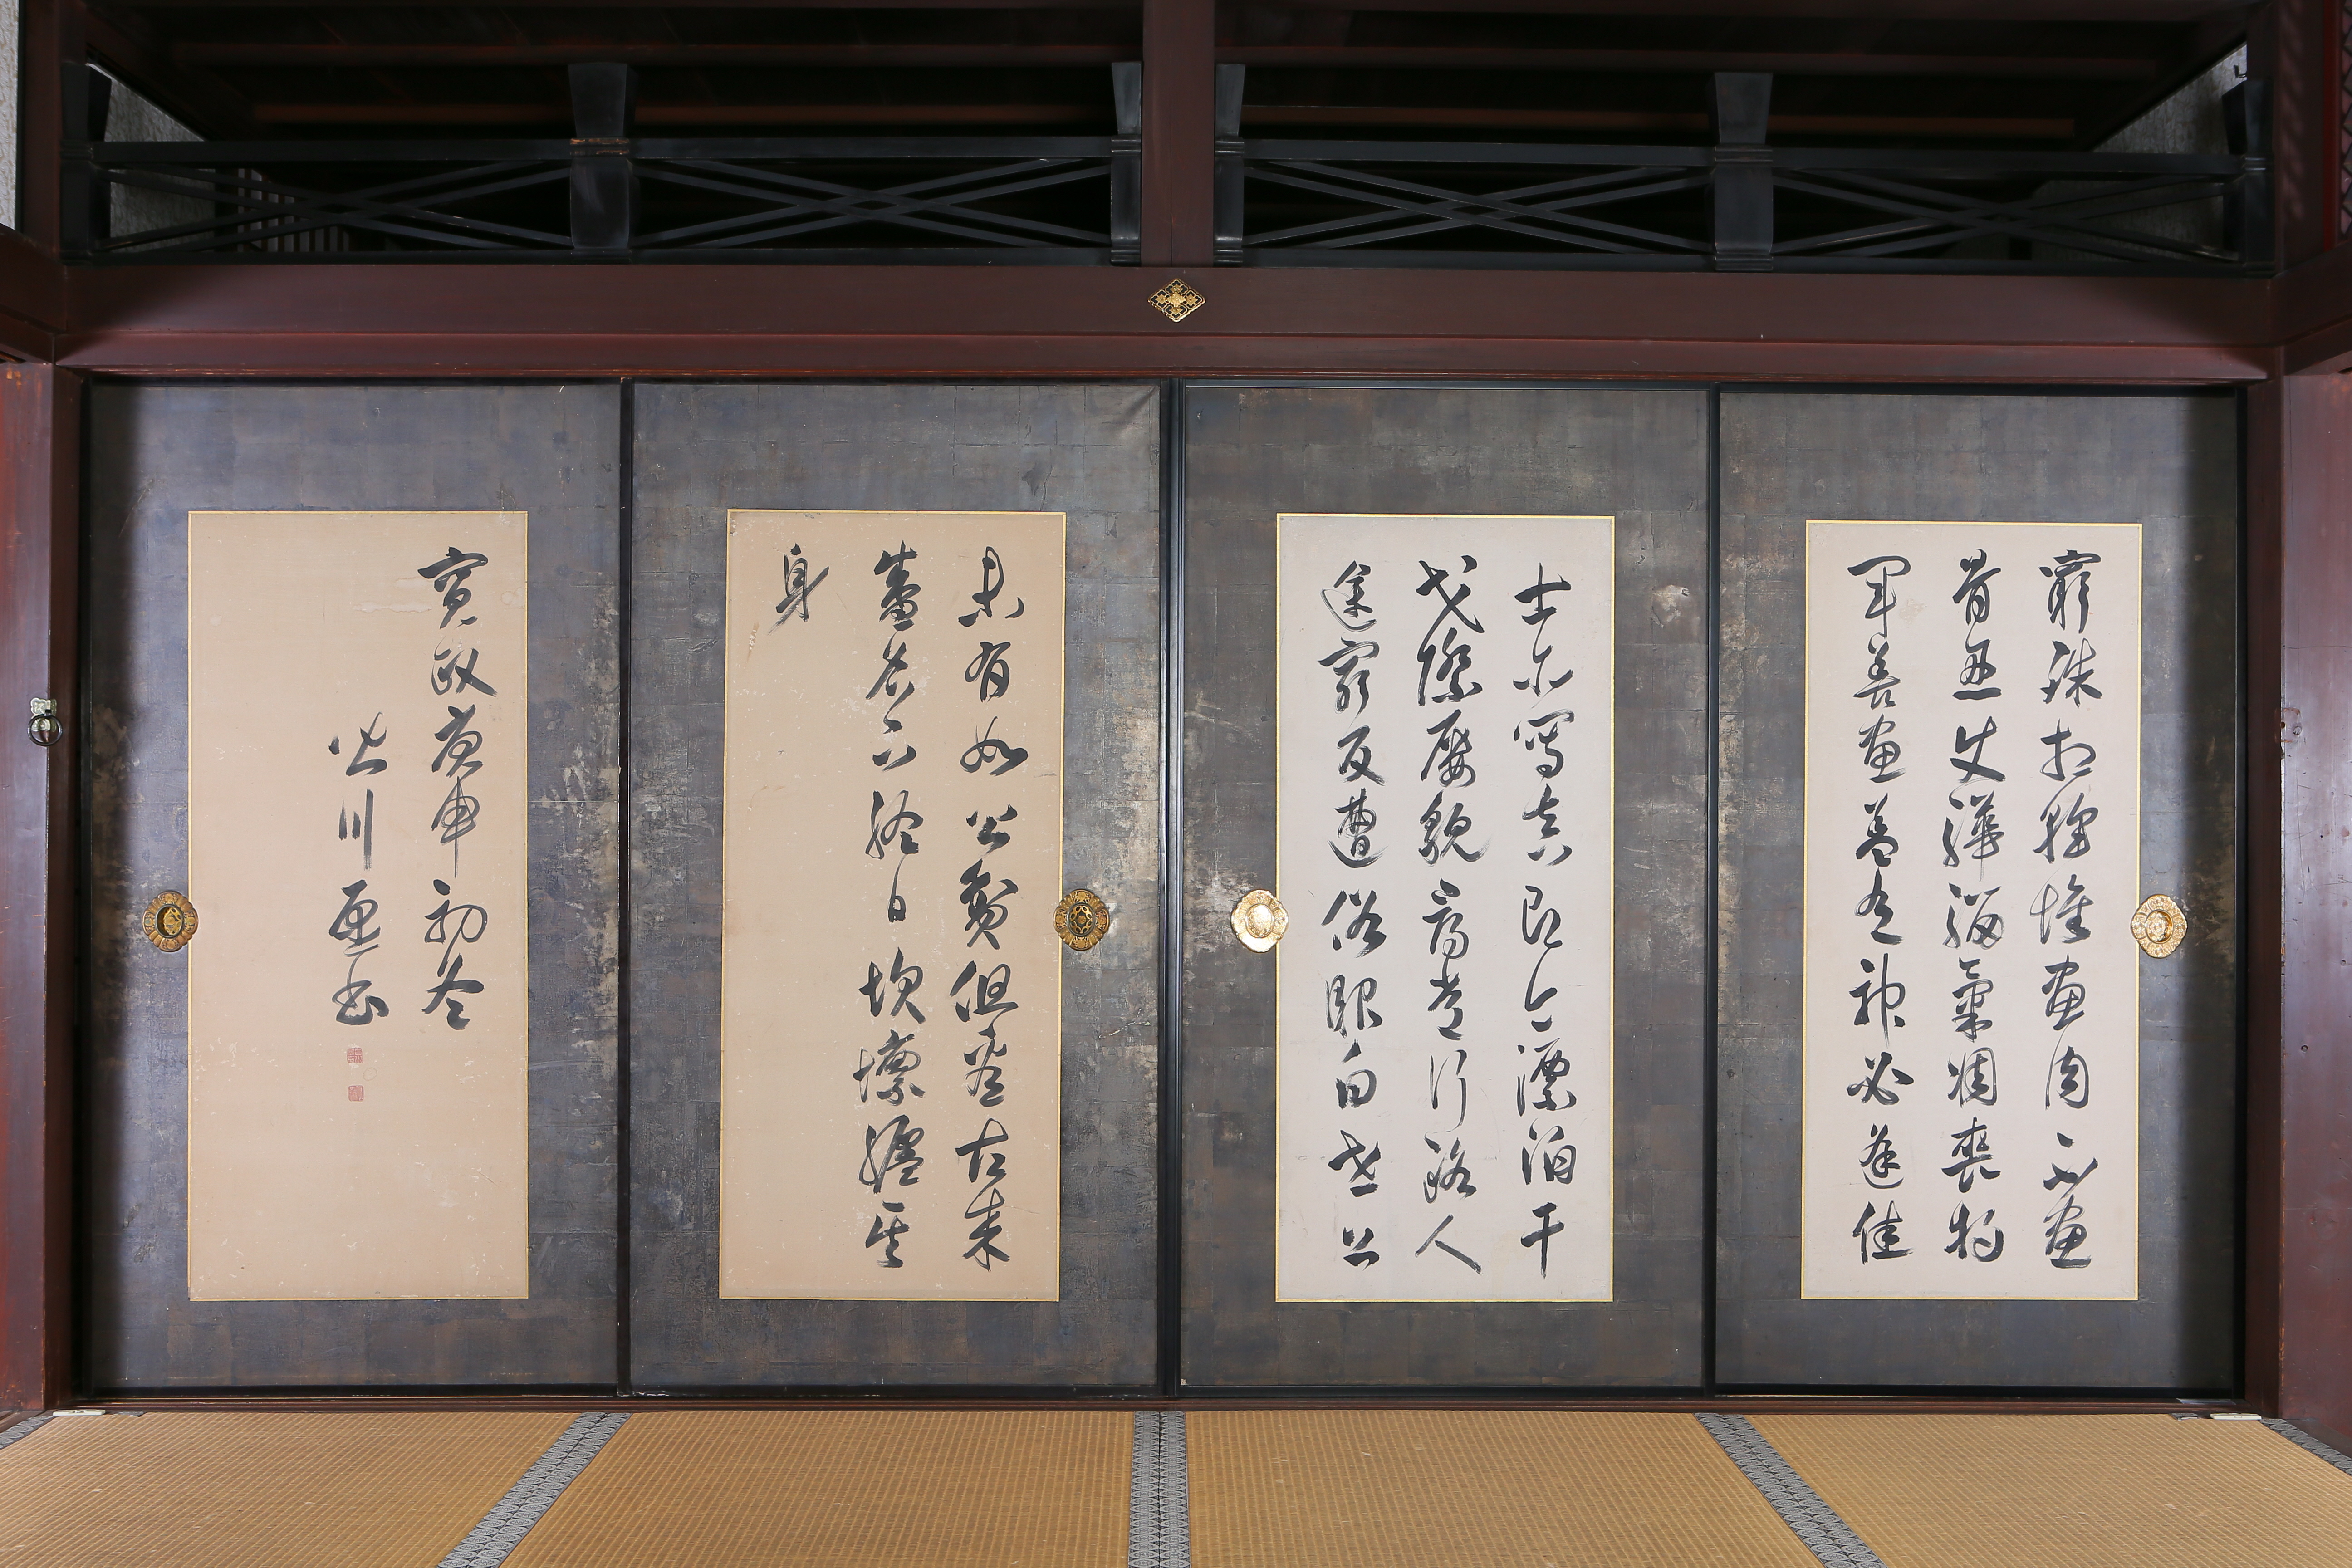 窮殊相幹惟畫肉不畫
骨忍使驊騮氣凋喪將
軍善畫蓋有神必逢佳
士亦寫真即今漂泊干
戈際屢貌尋常行路人
途窮反遭俗眼白世上
未有如公貧但看古來
盛名下終日坎壈纏其
身
寛政庚申初冬
皆川愿書